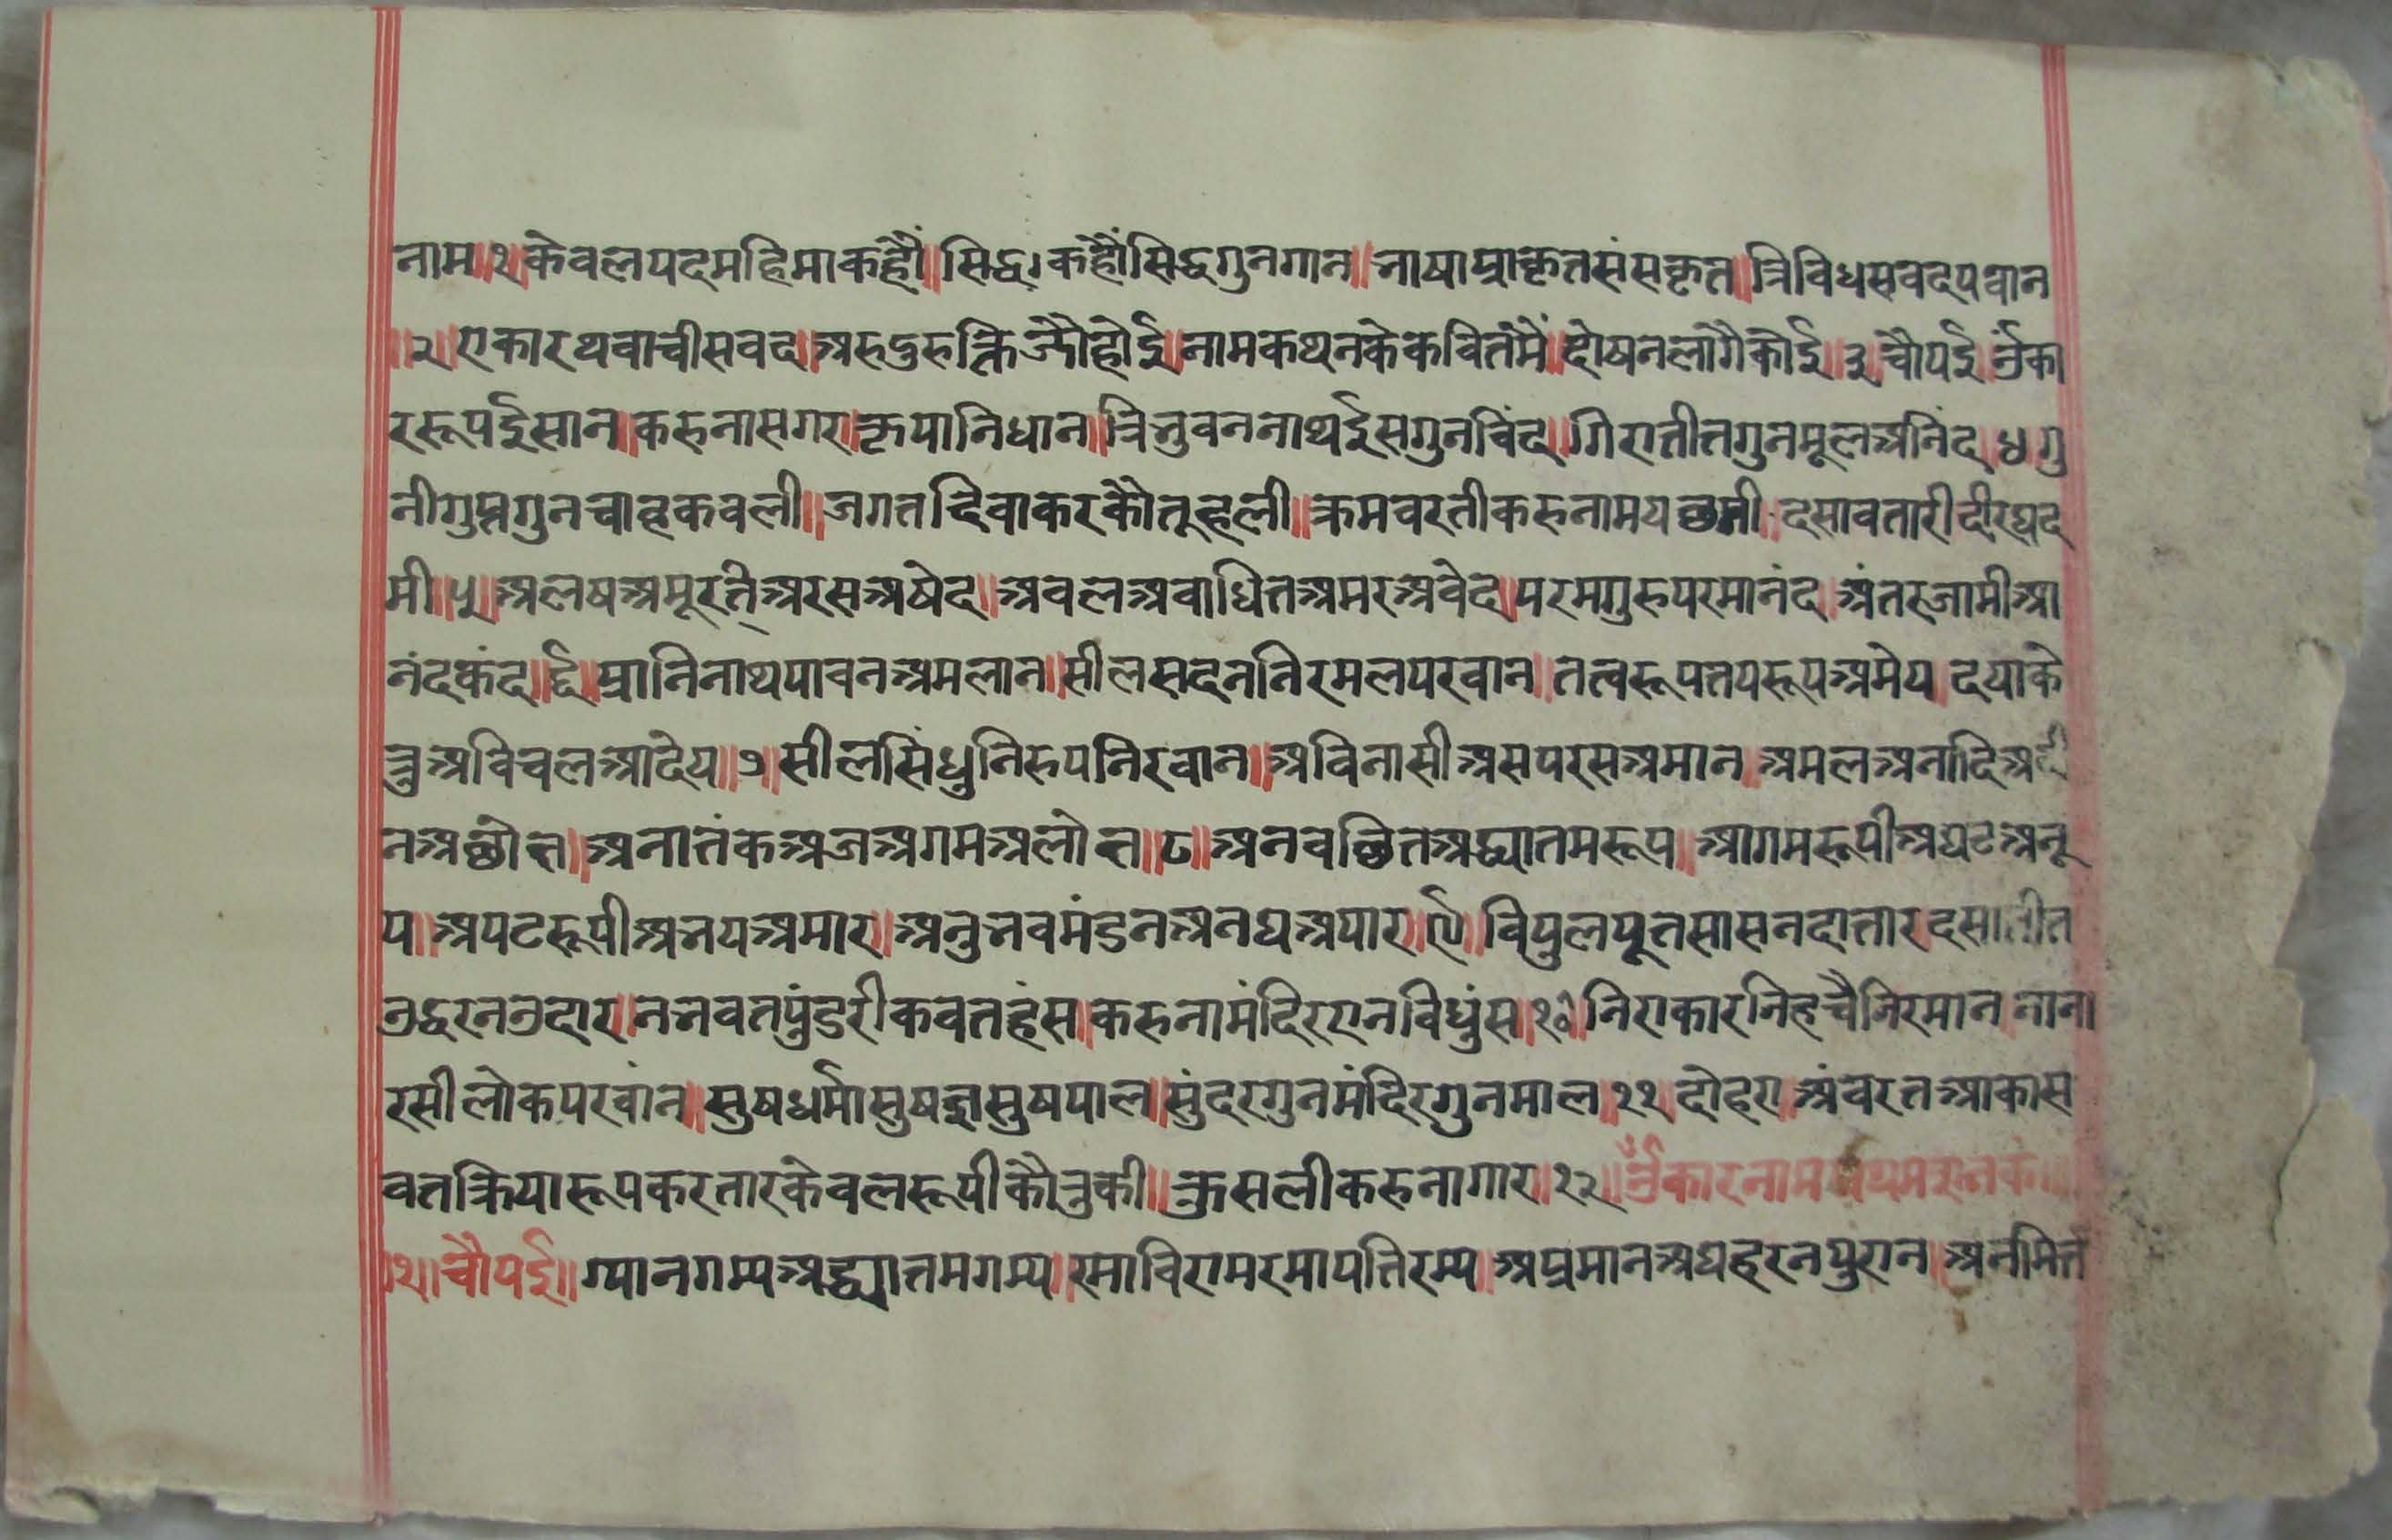 नाम॥१॥केवलपदमहिमाकहौं॥सिद्ध।कहौंसिद्धगुनगान॥भाषाप्राकृतसंसकृत॥त्रिविधसबदपवान
॥२॥एकारथवाचीसबद॥अरुदुरुक्तिजौहोई॥नामकथनकेकवितमैं॥दोषनलागैकोई॥३॥चौपई॥ॐका
ररूपईसान॥करुनासगर॥कृपानिधान॥त्रिभुवननाथईसगुनविंद॥गिरातीतगुनमूलअनिंद॥४॥गु
नीगुप्तगुनचाहकबली॥जगतदिवाकरकौतूहली॥क्रमवरतीकरुनामयछमी॥दसावतारीदीरघद
मी॥५॥अलषअमूरति्अरसअषेद॥अचलअवाधितअमरअवेद॥परमगुरुपरमानंद॥अंतरजामीआ
नंदकंद॥६॥प्रानिनाथपावनअमलान॥सीलसदननिरमलपरवान॥तत्वरूपतपरूपअमेय॥दयाके
तुअविचलआदेय॥७॥सीलसिंधुनिरुपनिरवान॥अविनासीअसपरसअमान॥अमलअनादिअदी
नअछोभ॥अनातंकअजअगमअलोभ॥८॥अनवछितअद्यातमरूप॥आगमरूपीअघटअनू
प॥अपटरूपीअभयअमार॥अनुभवमंडनअनघअपार॥९॥विपुलपूतसासनदातार॥दसातीत
उद्धरनउदार॥नभवतपुंडरीकवतहंस॥करुनामंदिरएनविधुंस॥१०॥निराकारनिहचैनिरमान॥नाना
रसीलोकपरवांन॥सुषधर्मासुषज्ञसुषपाल॥सुंदरगुनमंदिरगुनमाल॥११॥दोहरा॥अंबरतआकास
वतक्रियारूपकरतारकेवलरूपीकौतुकी॥कुसलीकरुनागार॥१२॥ॐकारनाम
॥१॥चौपई॥ग्यानगम्यअद्ध्यातमगम्य॥रमाविरामरमापतिरम्य॥अप्रमानअघहरनपुरान॥अनमित